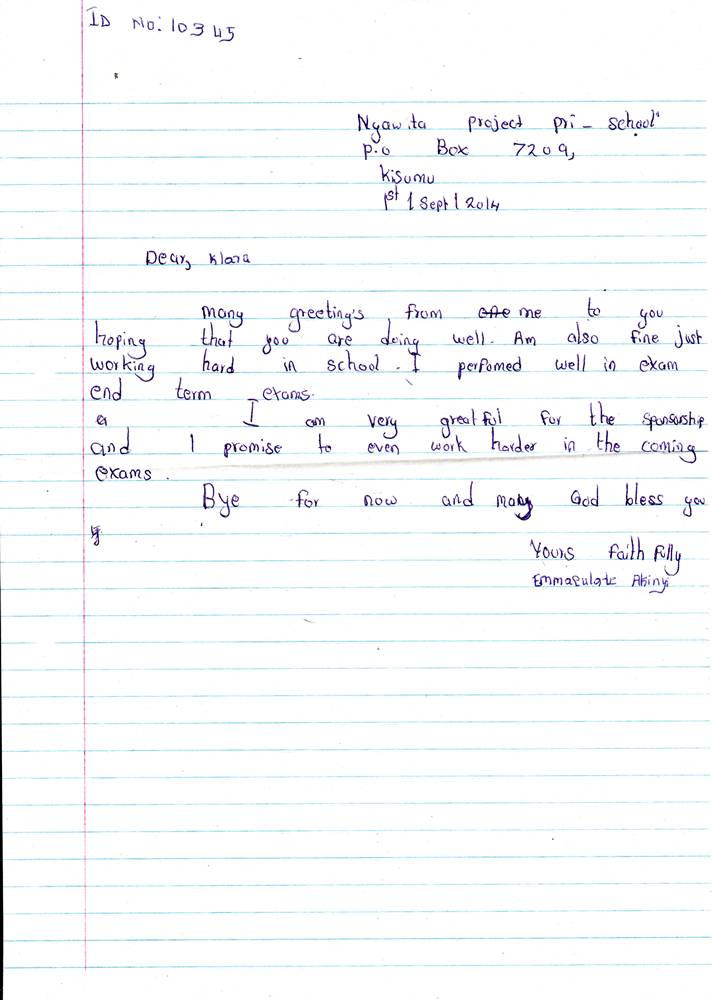 ID No: 10345
Nyawita project pri - school
P.o Box 7209,
Kisumu
1st / Sept / 2014
Dear, Klara
many greeting's from me to you
hoping that you are doing well. Am also fine just
working hard in school. I perfomed well in exam
end term exams.
I am very greatful for the sponsorship
and I promise to even work harder in the coming
exams.
Bye for now and may God bless you
Yours Faith Fully
Emmaculate Akinyi